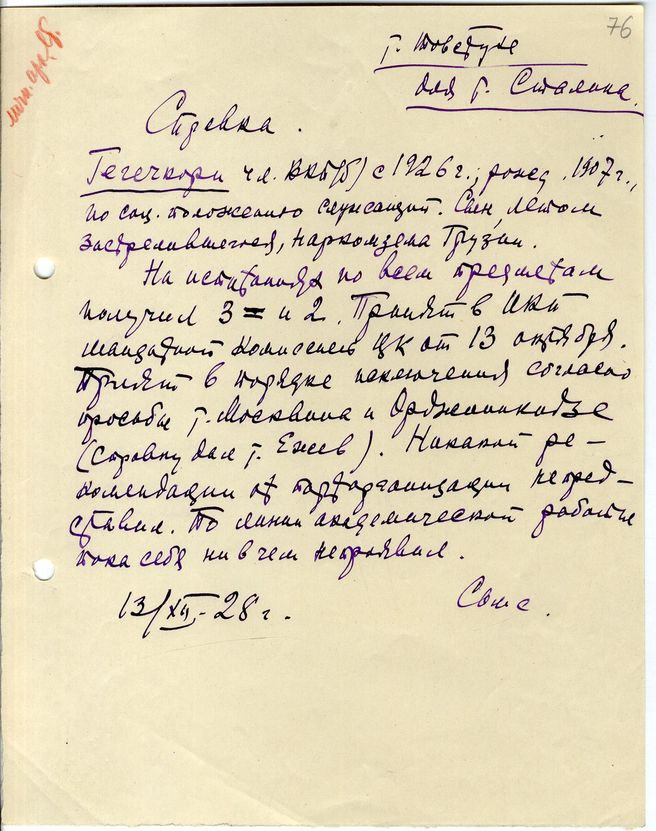 76
т. Товстухе
для т. Сталина.
Справка.
Гегечкори чл. ВКП(б) с 1926 г., рожд. 1907 г.,
по соц. положению служащий. Сын, летом
застрелившегося, наркомзема Грузии.
На испытаниях по всем предметам
получил 3= и 2. Принят в ИКП
мандатной комиссией ЦК от 13 октября.
Принят в порядке исключения согласно
просьбы т. Москвина и Орджоникидзе
(справку дал т. Ежев). Никакой ре-
комендации от парторганизации непред-
ставил. По линии академической работы
пока себя ни в чем непроявил.
13/XII-28 г.